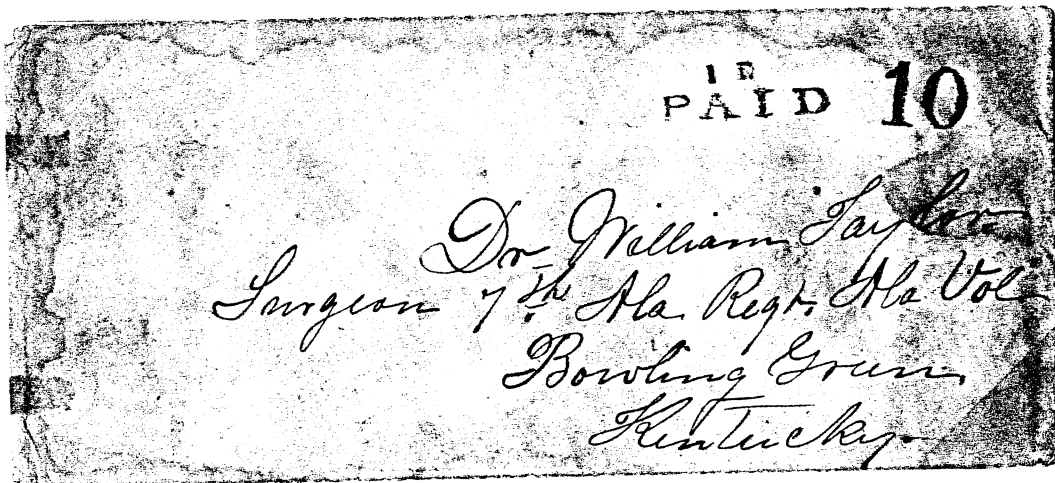 PAID 10
Dr William Taylor
Surgeon 7th Ala. Regt. Ala Vol.
Bowling Green
Kentucky